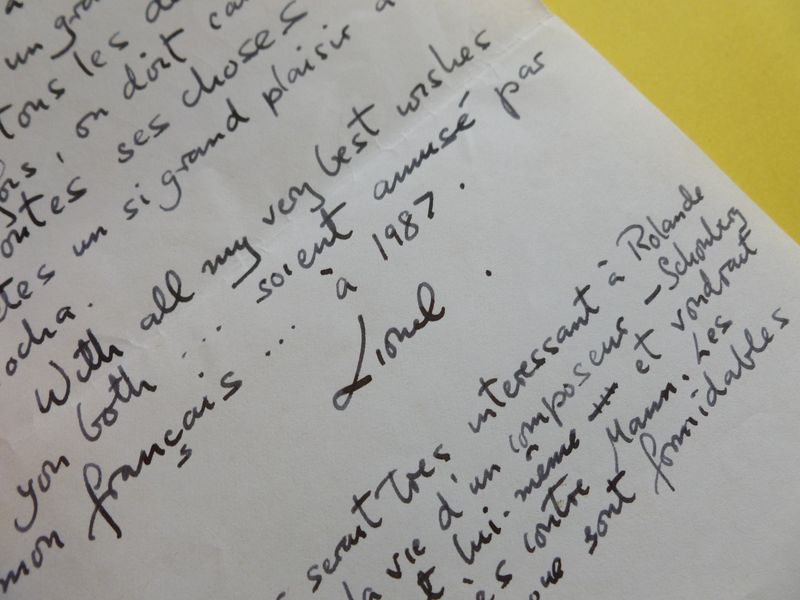 un gra
tous les de
fois, on doit ca
toutes ses choses
etes un si grand plaisir à
ocha.
With all my very best wishes
you both ... soient amusé par
mon français ... à 1987.
Lionel.
serait très interessant à Rolande
la vie d'un composeur - Schonberg
t lui-même et voudrait
es contre Mann. Les
que sont formidables